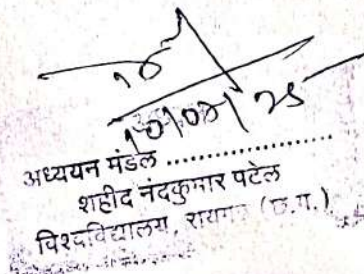 अध्ययन मंडल ....................
शहीद नंदकुमार पटेल
विश्वविद्यालय, रायगढ़ (छ.ग.)